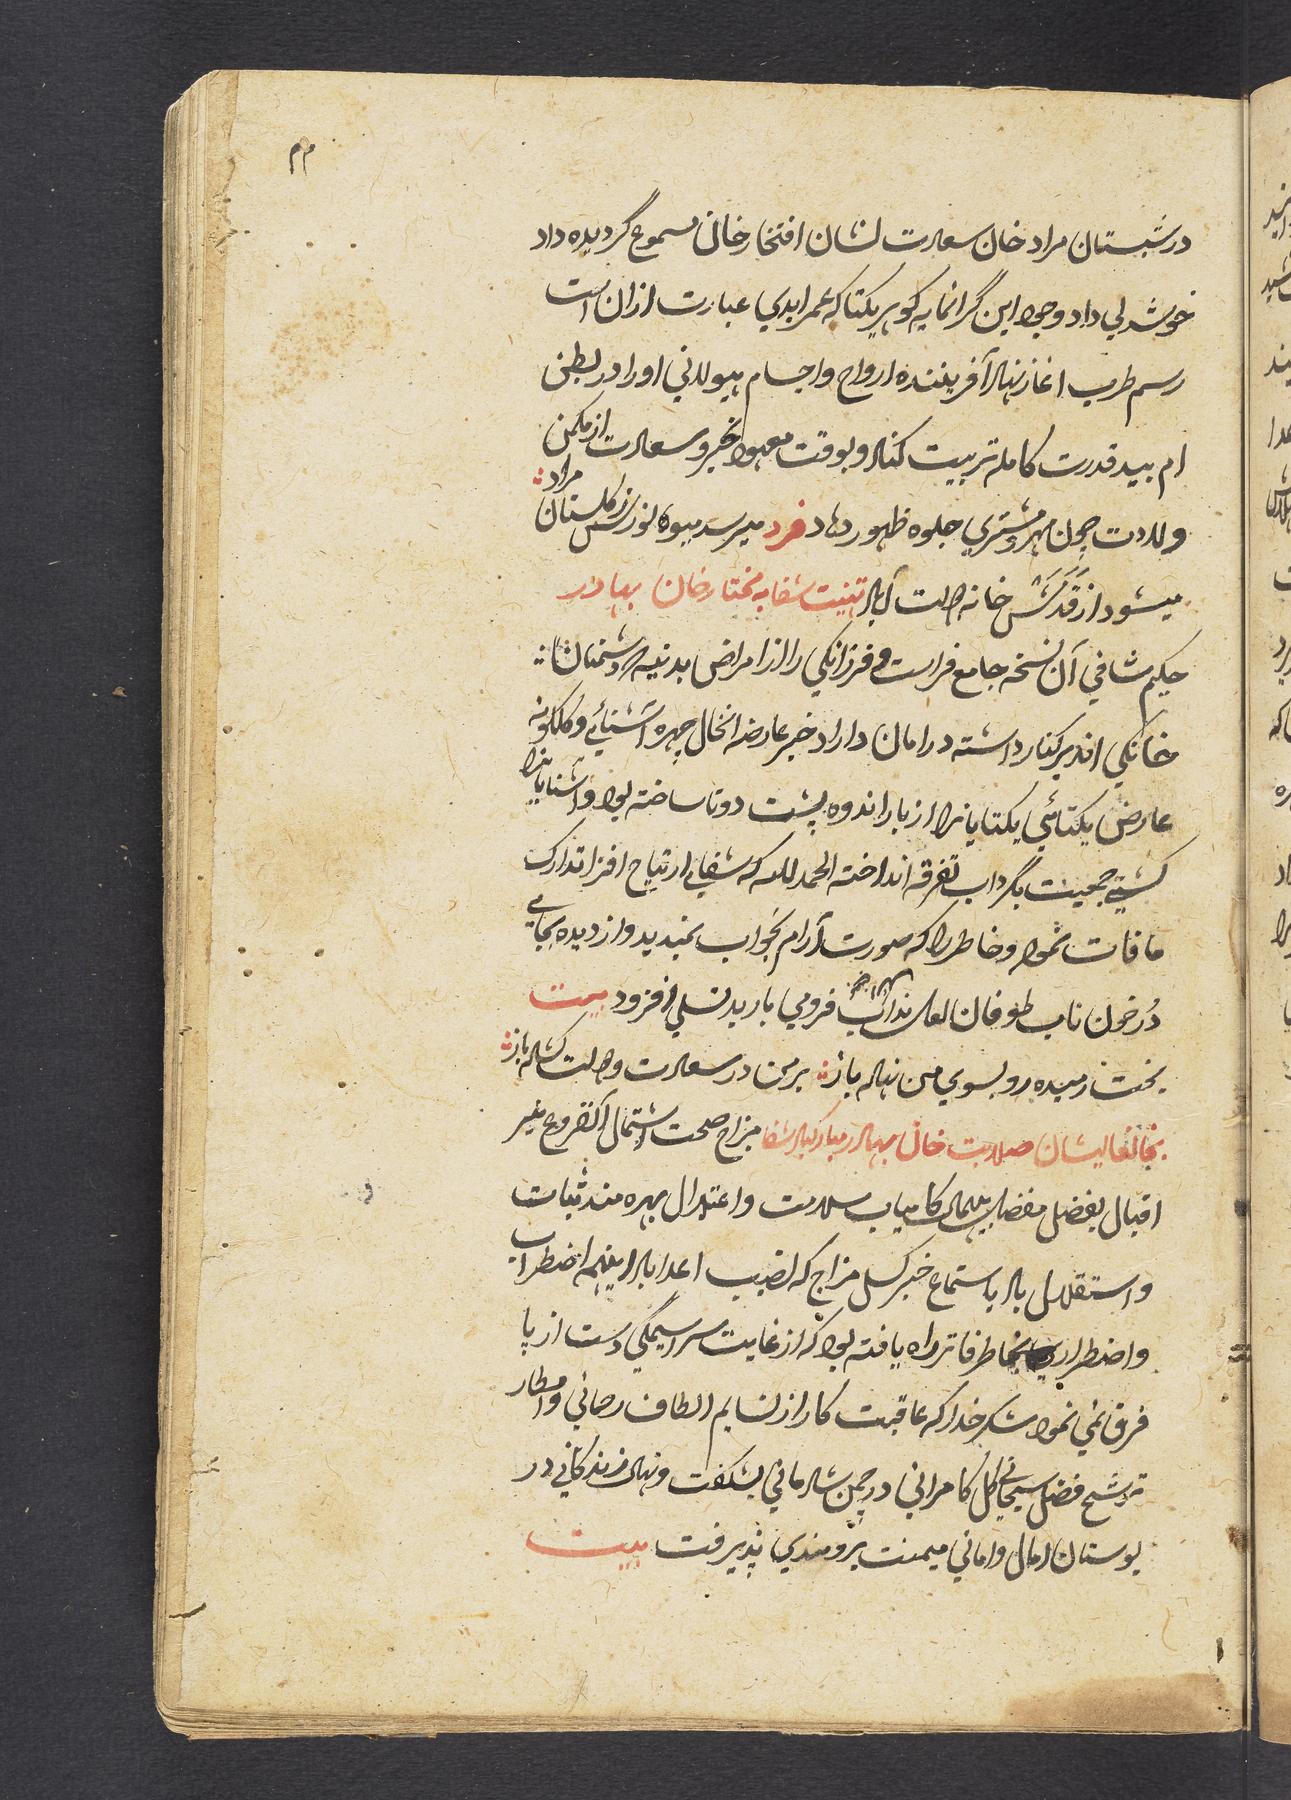 ۴۳
در شبستان مراد خان سعادت نشان افتخار خان مسموع گردیده داد
خوشدلی داد وجود این گرانمایه گوهر یکتا که عمر ابدی عبارت ازان است
رسم طرب اغاز نهاد آفریننده ارواح و اجسام هیولانی او را در بطن
ام بید قدرت کامله تربیت کناد و بوقت معهود بخیر و سعادت از مکمن
ولادت چون مهر و مشتری جلوه ظهور دهاد فرد میرسد میوه نورس ز گلستان مراد
میشود از قدمش خانه دولت آباد تهنیت شفا به مختار خان بهادر
حکیم شافی آن نسخه جامع فراست و فرزانگی را از امراض بدنیه و دشمنان
خانگی اندیر کنار داشته در امان داراد خبر عارضه انحال چهره اشنائی و گلگونه
عارض یکتائی یکتایانرا از بار اندوه پشت دوتا ساخته بود و اشنایانرا
کشتی جمعیت بگرداب تفرقه انداخته الحمد لله که شفای ارتیاح افزا تدارک
مافات نمود و خاطر را که صورت آرام بخواب نمیدید و از دیده بجای
در خون ناب طوفان فرو می بارید تسلی افزود بیت
بخت رمیده رو بسوی من نهاد باز بر من در سعادت و دولت گشاد باز
بخانعالیشان صلابت خان بهادر مبارکباد شفا مزاج صحت اشتمال آنفروغ منیر
اقبال بفضل مفضل بیهمال کامیاب سلامت و اعتدال بهره مند ثبات
و استقلال باد باستماع خبر کسل مزاج که نصیب اعدا باد اینهمه اضطراب
و اضطرار بخاطر فاتر راه یافته بود که از غایت سراسیمگی دست از پا
فرق نمی نمود شکر خدا که عاقبت کار از نسایم الطاف رحمانی و امطار
ترشح فضل سبحانی گل کامرانی در چمن شادمانی بشکفت و نهال زندگانی در
بوستان امال و امانی میمنت برومندی پذیرفت بیت